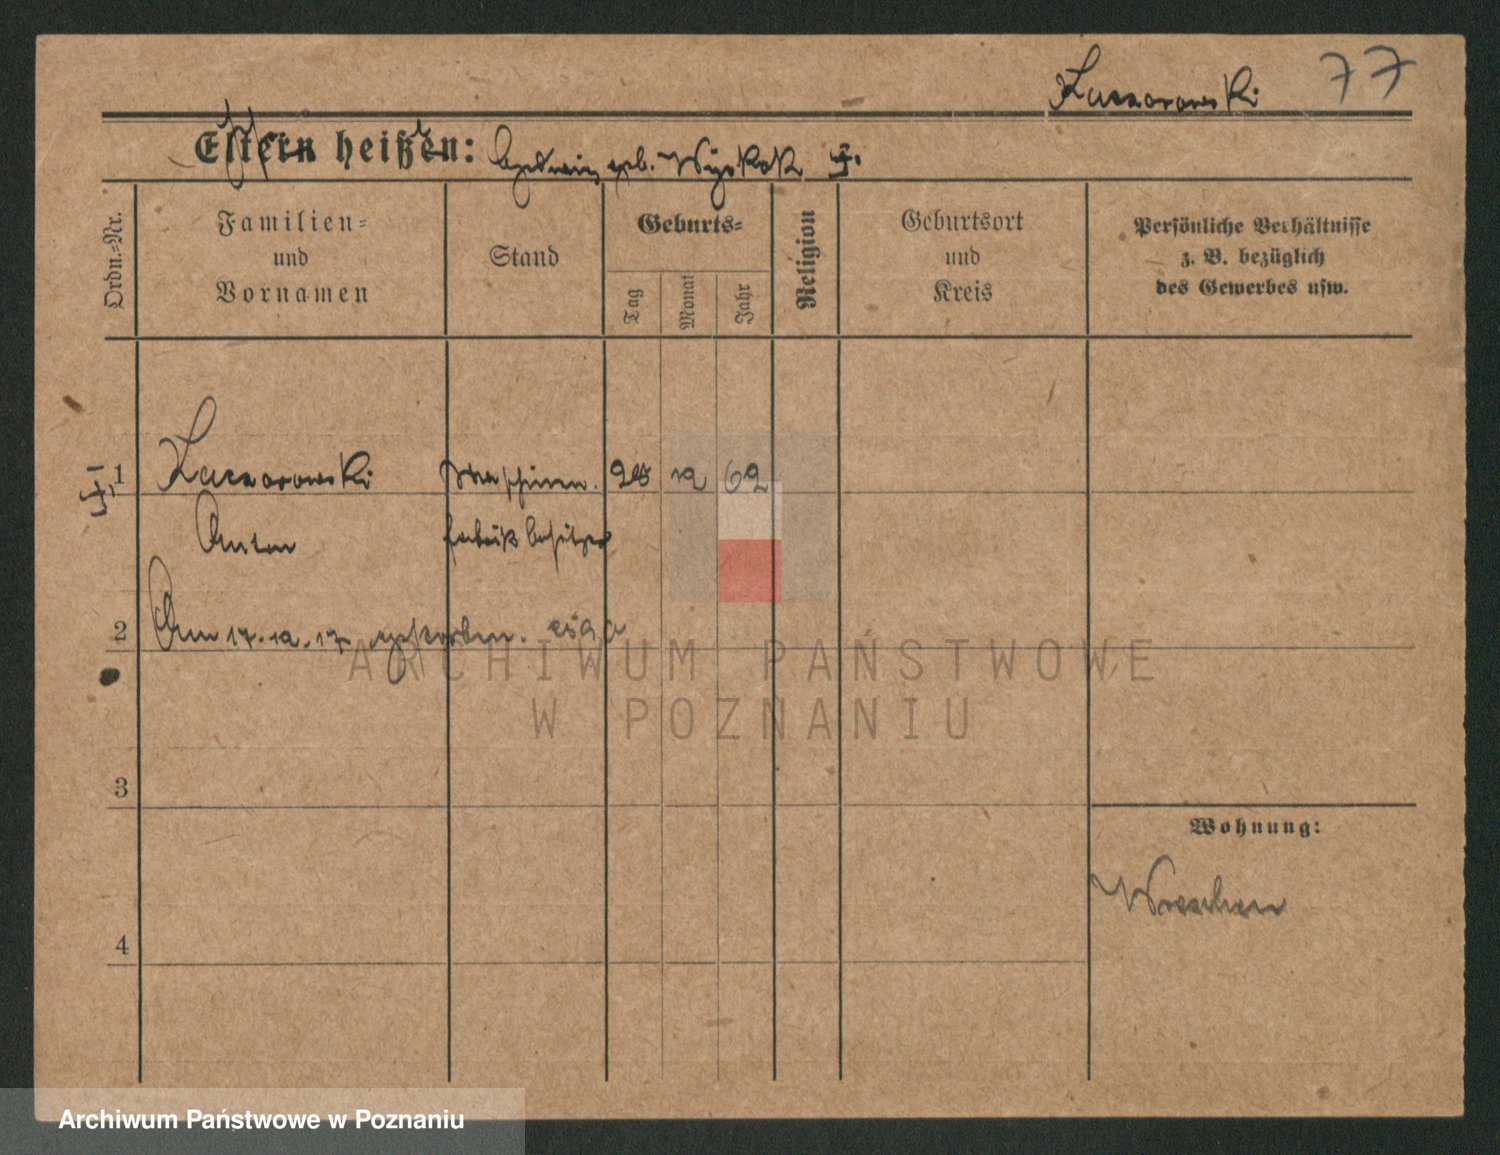 Kaczorowski 77
Eltern heißen: Hedwig geb. Wyskok
Ordn.-Nr.
Familien-
und
Vornamen
Stand
Geburts-
Tag
Monat
Jahr
Religion
Geburtsort
und
Kreis
Persönliche Verhältnisse
z. B. bezüglich
des Gewerbes usw.
1 Kaczorowski Maschinen. 28 12 62
Anton fabrikbesitzer
2 Am 17.12.17 gestorben.
ARCHIWUM PAŃSTWOWE
W POZNANIU
3
Wohnung:
Wreschen
4
Archiwum Państwowe w Poznaniu